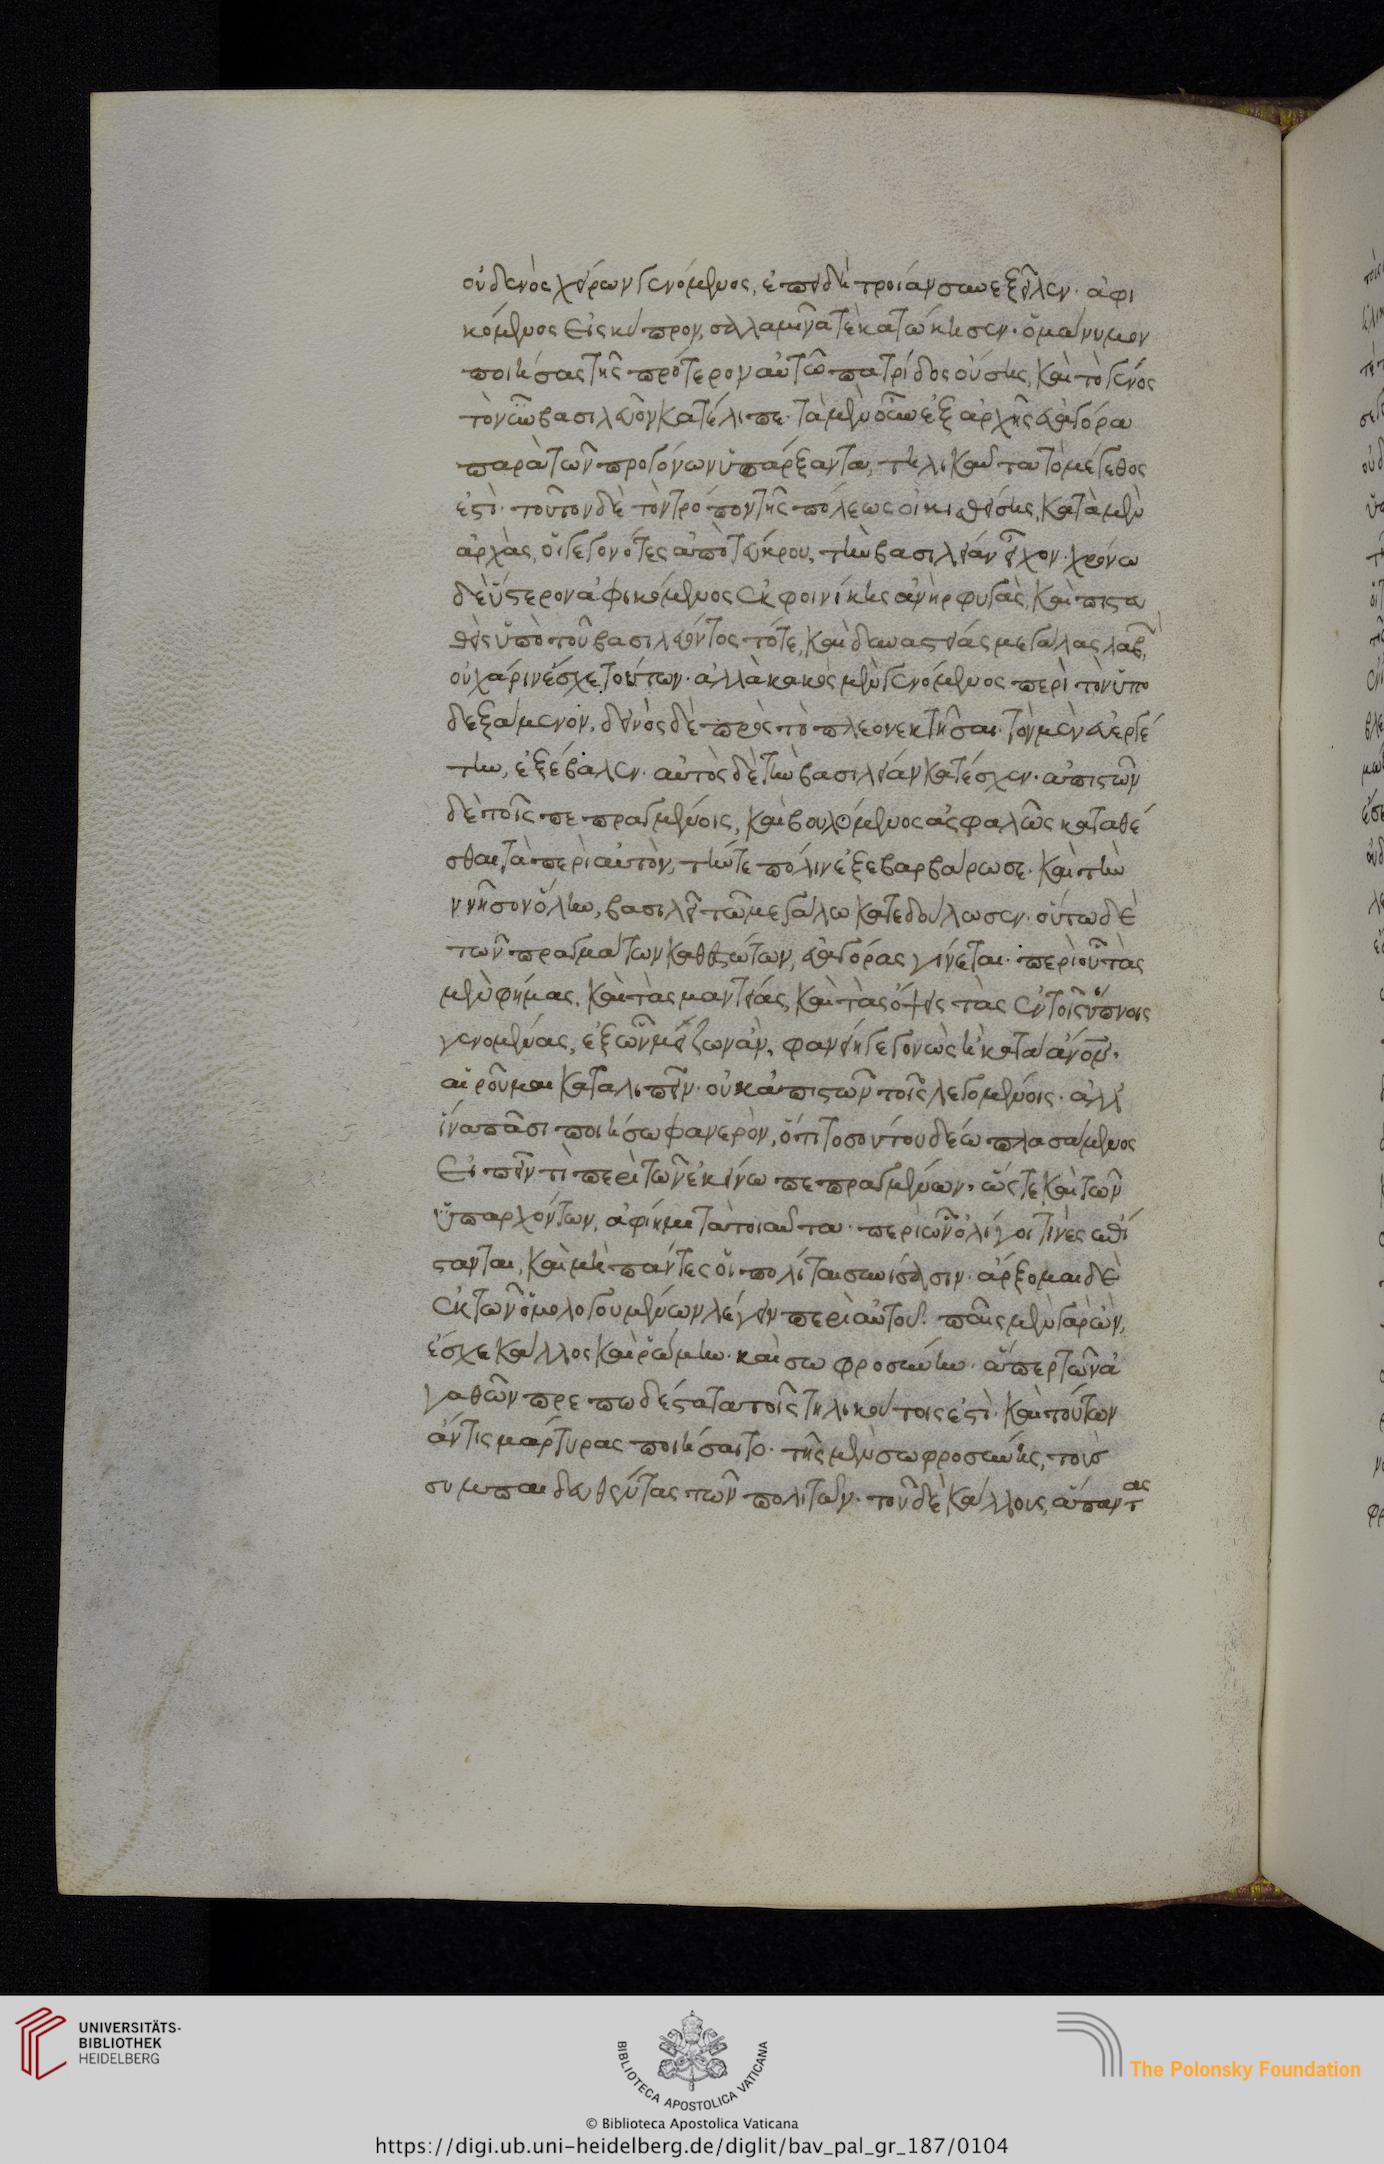 οὐδενὸς χείρων γενόμενος, ἐπειδὴ τροίαν συνεξεῖλεν. ἀφι
κόμενος εἰς κύπρον, σαλαμῖνα τὲ κατώκησεν. ὁμώνυμον
ποιήσας τῆς πρότερον αὐτῶ πατρίδος οὔσης, καὶ τὸ γένος
τὸ νῦν βασιλεῦον κατέλιπε. τὰ μὲν οὖν ἐξ ἀρχῆς εὐαγόρα
παρὰ τῶν προγόνων ὑπάρξαντα, τηλικαῦτα τὸ μέγεθος
ἐστὶ. τοῦτον δὲ τὸν τρόπον τῆς πόλεως οἰκισθείσης, κατὰ μὲν
ἀρχὰς, οἱ γεγονότες ἀπὸ τεύκρου, τὴν βασιλείαν εἶχον. χρόνω
δὲ ὕστερον ἀφικόμενος ἐκ φοινίκης ἀνὴρ φυγὰς, καὶ πιστευ
θεὶς ὑπὸ τοῦ βασιλεύοντος τότε, καὶ δυναστείας μεγάλας λαβ,
οὐ χάριν ἔσχε τούτων. ἀλλὰ κακὸς μὲν γενόμενος περὶ τὸν ὑπο
δεξάμενον, δεινὸς δὲ πρὸς τὸ πλεονεκτῆσαι. τὸν μὲν εὐεργέ
την, ἐξέβαλεν. αὐτὸς δὲ τὴν βασιλείαν κατέσχεν. ἀπιστῶν
δὲ τοῖς πεπραγμένοις, καὶ βουλόμενος ἀσφαλῶς καταθέ
σθαι τὰ περὶ αὐτὸν, τήν τε πόλιν ἐξεβαρβάρωσε. καὶ τὴν
νῆσον ὅλην, βασιλεῖ τῶ μεγάλω κατεδούλωσεν. οὕτω δὲ
τῶν πραγμάτων καθεστώτων, εὐαγόρας γίνεται. περὶ οὗ τὰς
μὲν φήμας, καὶ τὰς μαντείας, καὶ τὰς ὄψεις τὰς ἐν τοῖς ὕπνοις
γενομένας, ἐξ ὧν μείζων ἂν, φανείη γεγονὼς ἢ κατὰ ἄνον,
αἱροῦμαι καταλιπεῖν. οὐκ ἀπιστῶν τοῖς λεγομένοις. ἀλλ'
ἵνα πᾶσι ποιήσω φανερὸν, ὅτι τοσούτου δέω πλασάμενος
εἰπεῖν τὶ περὶ τῶν ἐκείνω πεπραγμένων, ὥστε καὶ τῶν
ὑπαρχόντων, ἀφίημι τὰ τοιαῦτα. περὶ ὧν ὀλίγοι τινὲς ἐπί
στανται, καὶ μὴ πάντες οἱ πολίται συνίσασιν. ἄρξομαι δὲ
ἐκ τῶν ὁμολογουμένων λέγειν περὶ αὐτοῦ. παῖς μὲν γὰρ ὢν,
ἔσχε κάλλος καὶ ῥώμην. καὶ σωφροσύνην. ἅπερ τῶν ἀ
γαθῶν πρεπωδέστατα τοῖς τηλικούτοις ἐστὶ. καὶ τούτων
ἄν τις μάρτυρας ποιήσαιτο. τῆς μὲν σωφροσύνης, τοὺς
συμπαιδευθέντας τῶν πολιτῶν. τοῦ δὲ κάλλους, ἅπαντας
UNIVERSITÄTS-
BIBLIOTHEK
HEIDELBERG
BIBLIOTECA APOSTOLICA VATICANA
The Polonsky Foundation
© Biblioteca Apostolica Vaticana
https://digi.ub.uni-heidelberg.de/diglit/bav_pal_gr_187/0104